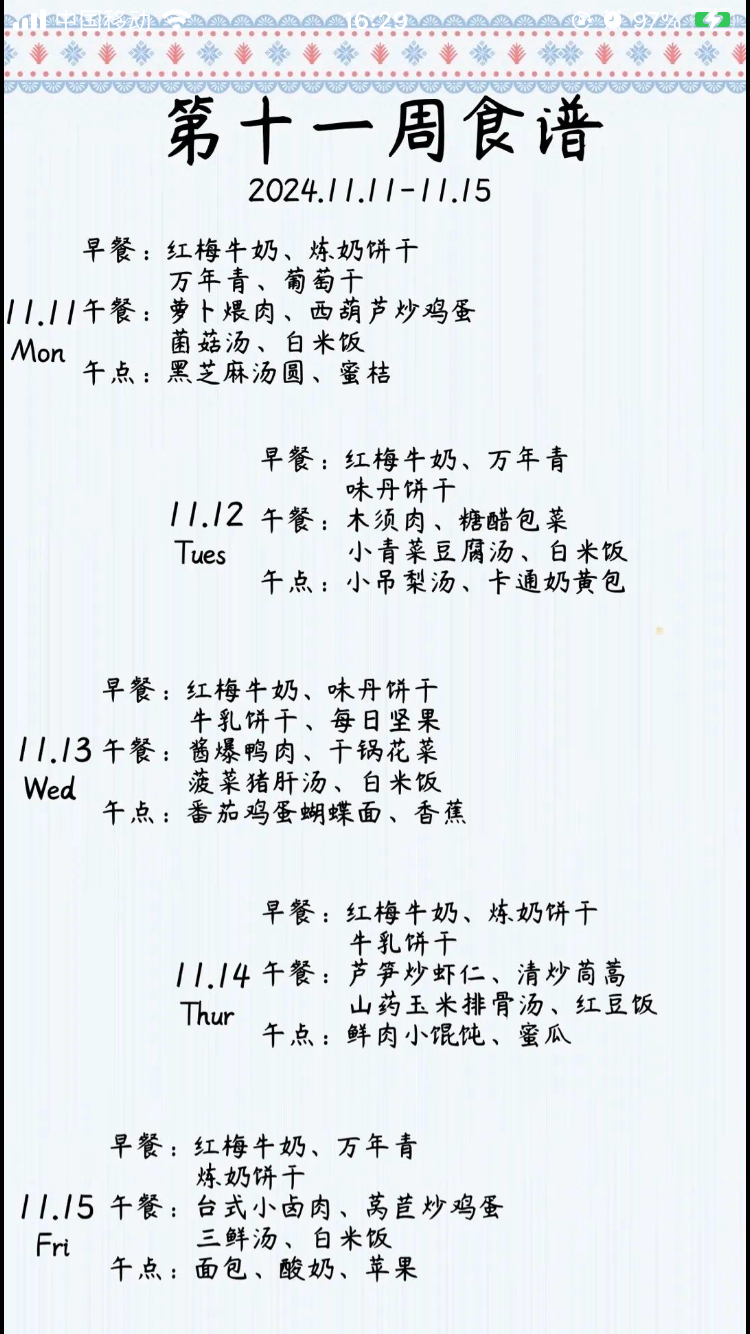 中国移动 16:29 97%
第十一周食谱
2024.11.11-11.15
早餐：红梅牛奶、炼奶饼干
万年青、葡萄干
11.11 午餐：萝卜煨肉、西葫芦炒鸡蛋
Mon 菌菇汤、白米饭
午点：黑芝麻汤圆、蜜桔
早餐：红梅牛奶、万年青
味丹饼干
11.12 午餐：木须肉、糖醋包菜
Tues 小青菜豆腐汤、白米饭
午点：小吊梨汤、卡通奶黄包
早餐：红梅牛奶、味丹饼干
牛乳饼干、每日坚果
11.13 午餐：酱爆鸭肉、干锅花菜
Wed 菠菜猪肝汤、白米饭
午点：番茄鸡蛋蝴蝶面、香蕉
早餐：红梅牛奶、炼奶饼干
牛乳饼干
11.14 午餐：芦笋炒虾仁、清炒茼蒿
Thur 山药玉米排骨汤、红豆饭
午点：鲜肉小馄饨、蜜瓜
早餐：红梅牛奶、万年青
炼奶饼干
11.15 午餐：台式小卤肉、莴苣炒鸡蛋
Fri 三鲜汤、白米饭
午点：面包、酸奶、苹果